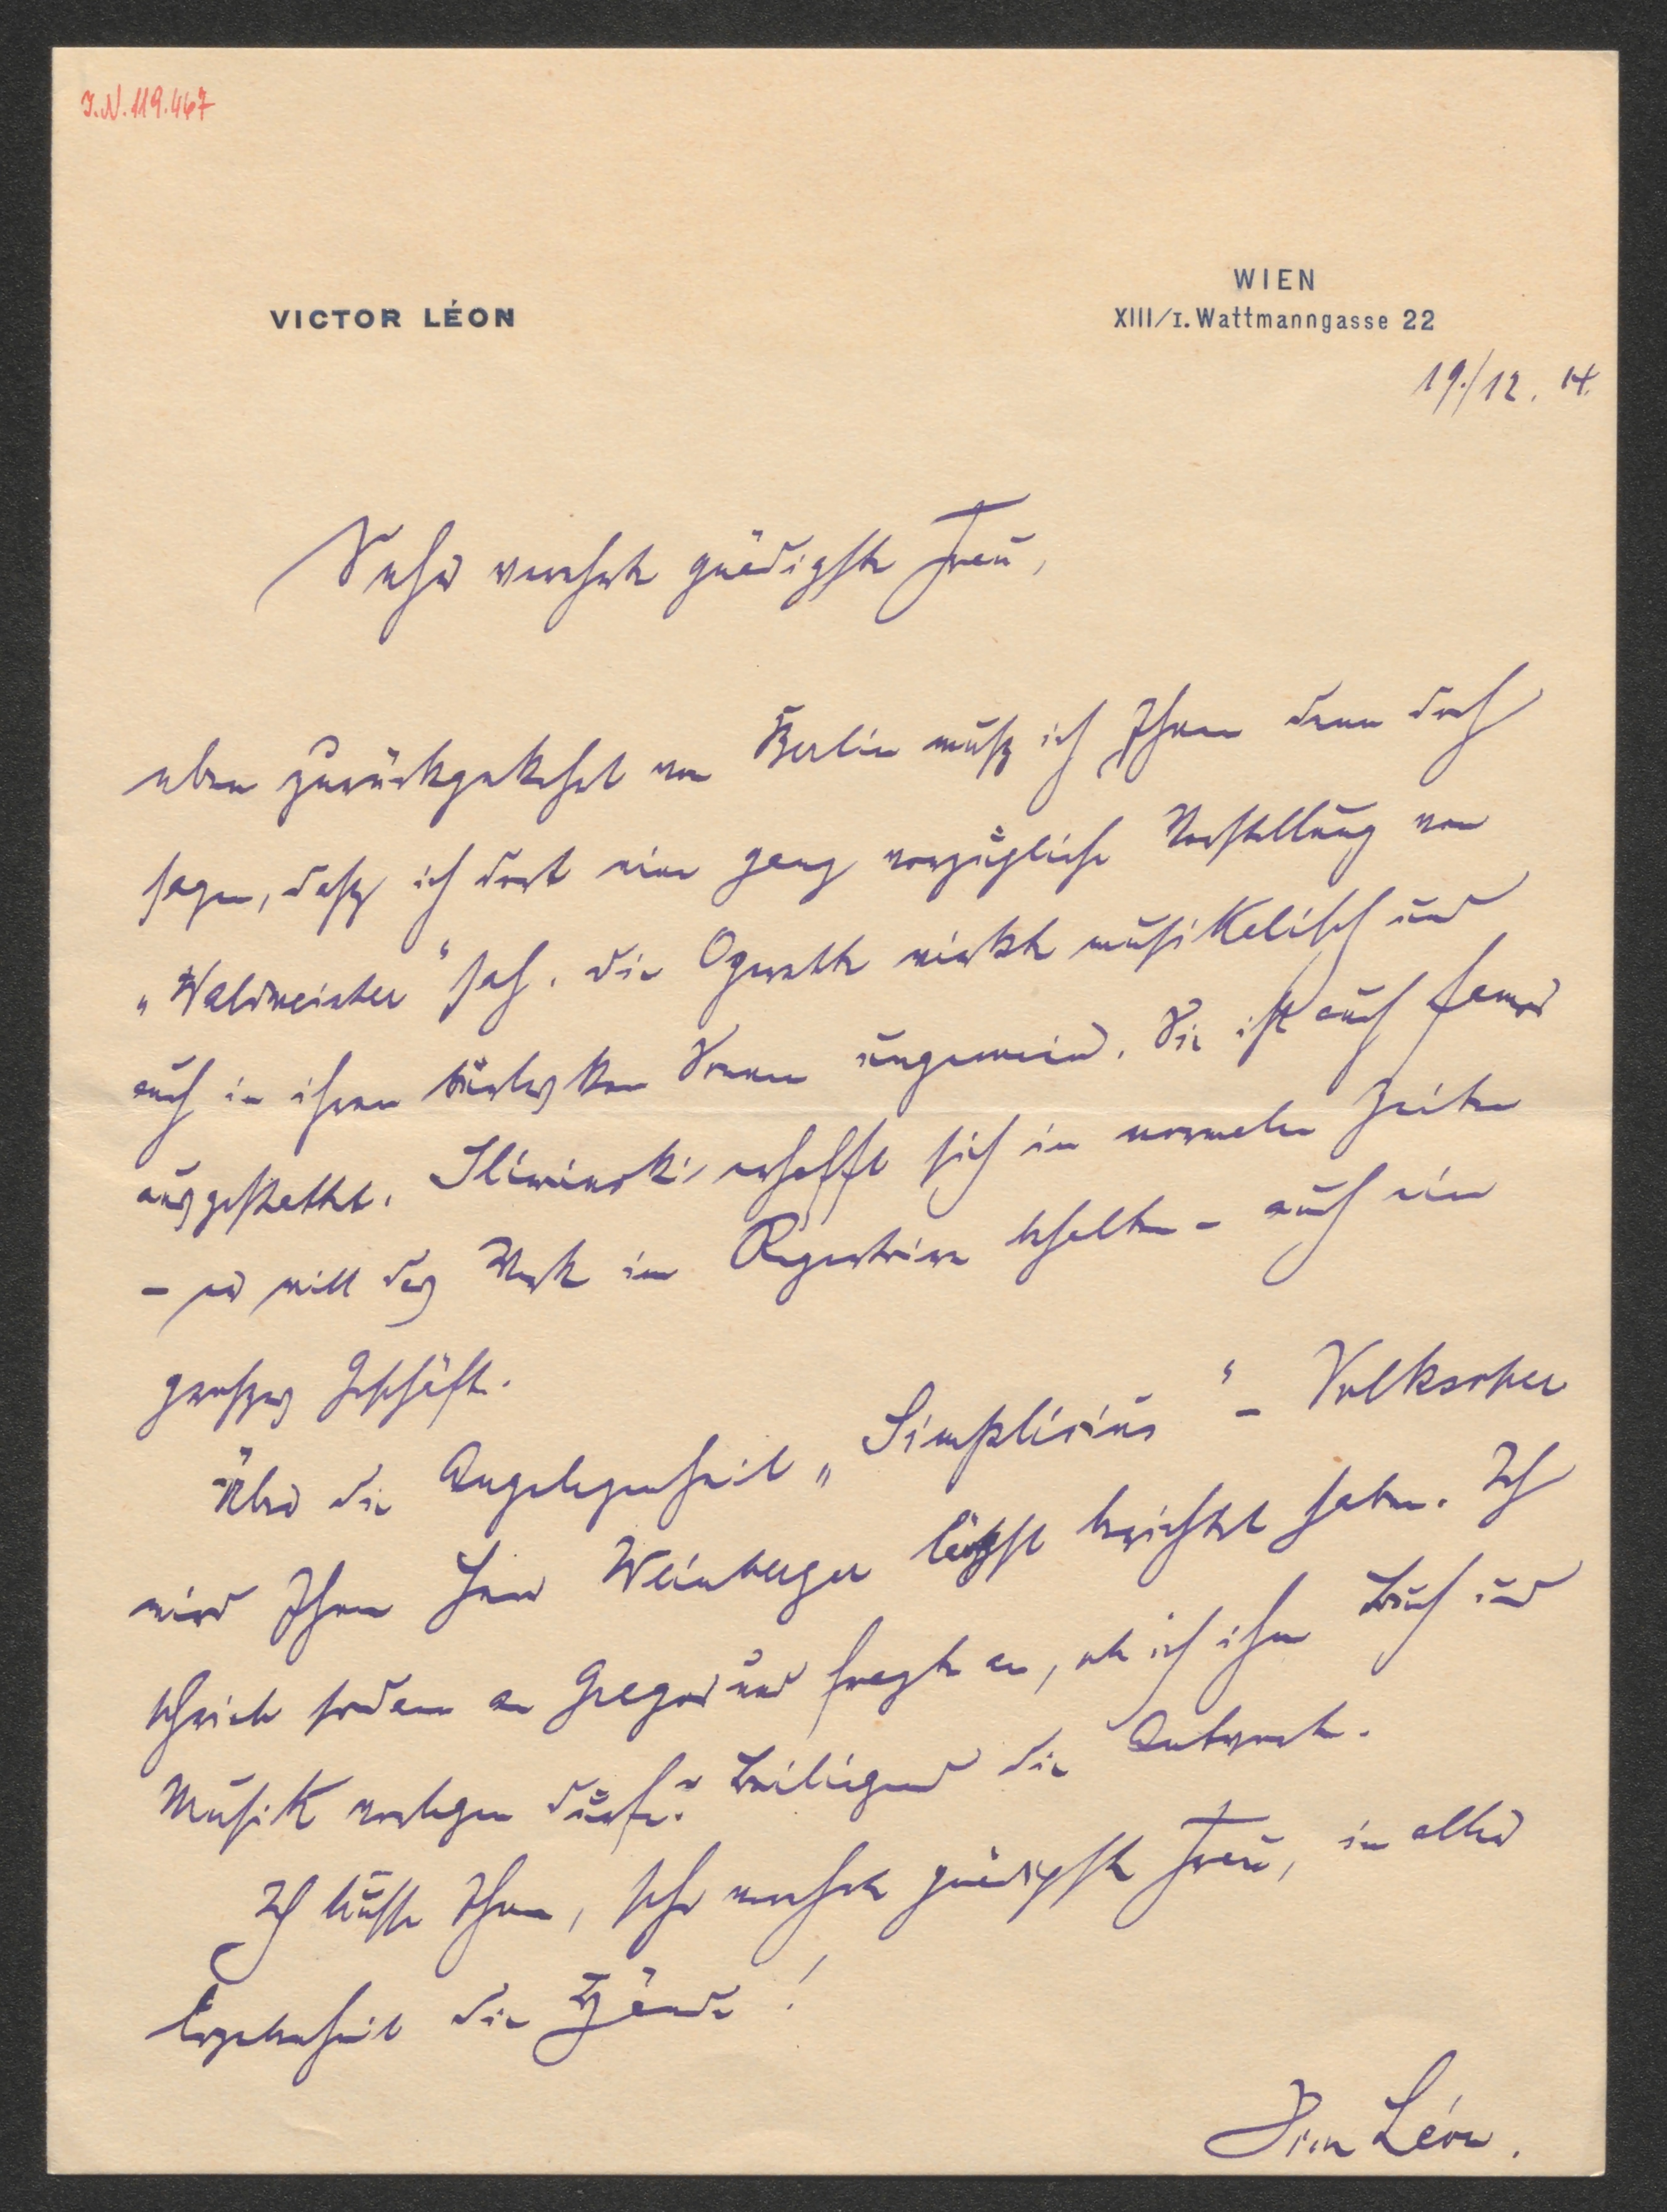 J.N. 119.467
VICTOR LÉON
WIEN
XIII/I. Wattmanngasse 22
19./12. 14.
Sehr verehrte gnädigste Frau,
eben zurückgekehrt von Berlin muß ich Ihnen denn doch
sagen, daß ich dort eine ganz vorzügliche Vorstellung von
„Waldmeister“ sah. Die Operette wirkte musikalisch und
auch in ihren burlesken Szenen ungemein. Sie ist auch famos
ausgestattet. Sliwinski erhofft sich in normalen Zeiten
– er will das Werk im Repertoire behalten – auch ein
großes Geschäft.
Über die Angelegenheit „Simplicius“ – Volksoper
wird Ihnen Herr Weinberger längst berichtet haben. Ich
schrieb sodann an Gregor und fragte an, ob ich ihm Buch und
Musik vorlegen dürfe. Beiliegend die Antwort.
Ich küsse Ihnen, sehr verehrte gnädigste Frau, in alter
Ergebenheit die Hände!
Léon.